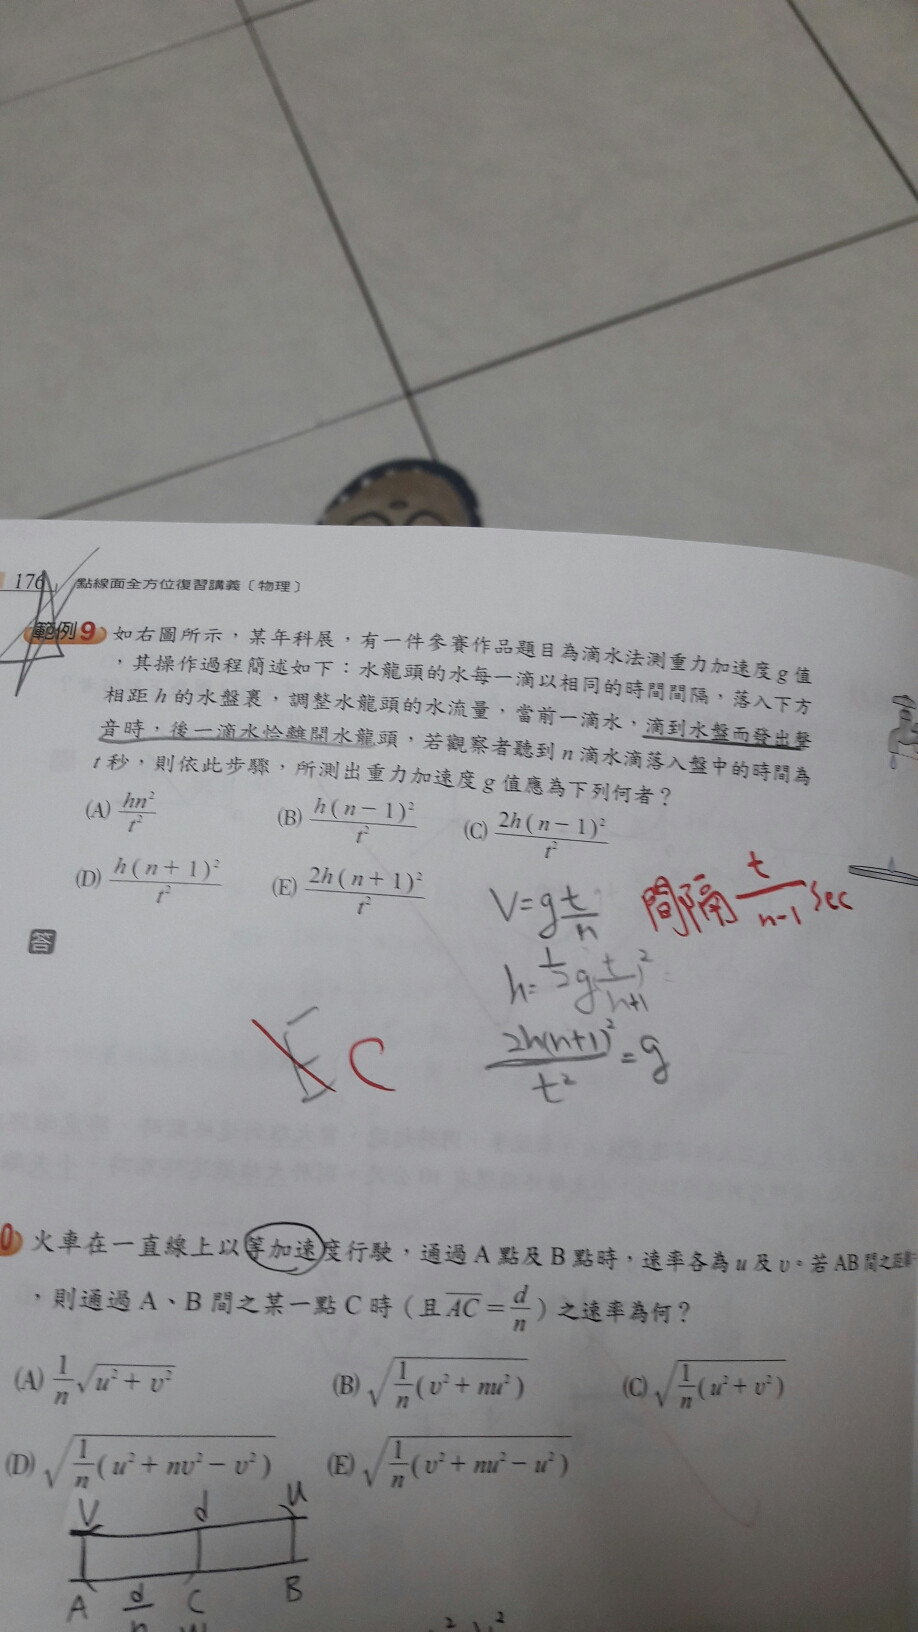 176 點線面全方位復習講義〔物理〕
範例9 如右圖所示，某年科展，有一件參賽作品題目為滴水法測重力加速度g值
，其操作過程簡述如下：水龍頭的水每一滴以相同的時間間隔，落入下方
相距h的水盤裏，調整水龍頭的水流量，當前一滴水，滴到水盤而發出聲
音時，後一滴水恰離開水龍頭，若觀察者聽到n滴水滴落入盤中的時間為
t秒，則依此步驟，所測出重力加速度g值應為下列何者？
(A) hn²/t² (B) h(n－1)²/t² (C) 2h(n－1)²/t²
(D) h(n＋1)²/t² (E) 2h(n＋1)²/t²
V=g t/n 間隔 t/n-1 sec
答
h=1/2 g (t/n+1)²
E C
2h(n+1)²/t² = g
0 火車在一直線上以等加速度行駛，通過A點及B點時，速率各為u及v。若AB間之距
，則通過A、B間之某一點C時（且AC＝d/n）之速率為何？
(A) 1/n √(u²＋v²) (B) √(1/n(v²＋nu²)) (C) √(1/n(u²＋v²))
(D) √(1/n(u²＋nv²－v²)) (E) √(1/n(v²＋nu²－u²))
V d u
A d/n C B